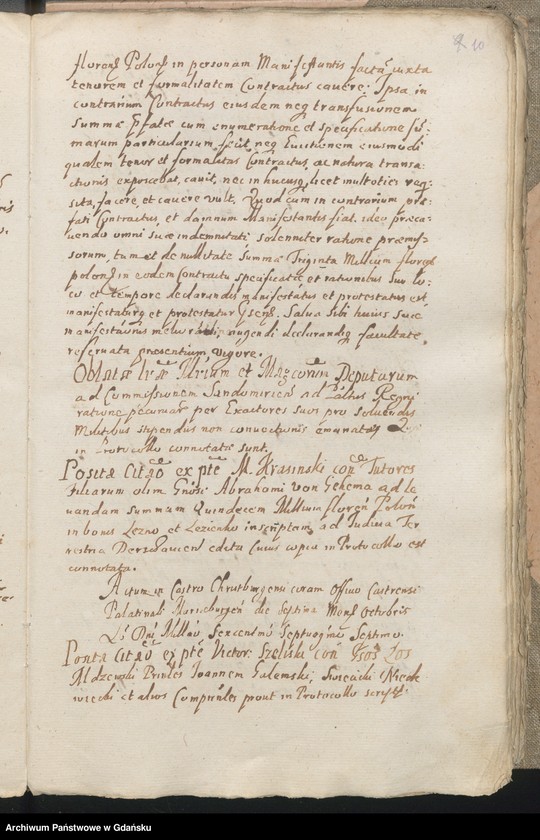 10
florens Polons in personam Manifestantis factu juxta
tenorem et formalitatem Contractus cavere. Ipsa in
contrarium Contractus eiusdem neq transfusionem
Summæ cum enumeratione et specificatione
marum particularium fecit, neq Evictionem eiusmodi
qualem tenor et formalitas Contractus, ac natura transa:
ctionis exposcebat, cavit, nec in hucusq, licet multoties req:
sita, facere, et cavere vult. Quod cum in contrarium præ:
fati Contractus, et damnum Manifestantis fiat, ideo præca:
vendo omni suæ indemnitati solenniter ratione præmis:
sorum, tum et de nullitate Summæ Triginta Millium floren
polons in eodem Contractu specificatæ et rationibus suo lo:
co et tempore declarandis manifestatus et protestatus est,
manifestaturq et protestatur Salva sibi huius suæ
manifestationis meliorandi, augendi declarandiq facultate,
reservata præsentium vigore.
Oblatæ lræ Illrium et Magcorum Deputatorum
ad Commissionem Sandomiriens ad Regni
ratione pecuniar per Exactores suos pro solvendis
Militibus stipendijs non emanatæ
in Protocollo connotatæ sunt.
Positæ Citao ex pte M. Krasinski con Tutores
filiarum olim Gnosi Abrahami von Gehema ad le
vandam summam Quindecem Millium floren Polon
in bonis Lezno et Lezienko inscriptam, ad Judicia Ter
restria edita cuius copia in Protocollo est
connotata.
Actum in Castro Christburgensi coram Officio Castrensi
Palatinali Marieburgen die Septima Mens Octobris
Dni Millmo Sexcentmo Septuagmo Septimo.
Ponta Citao ex pte Victor. Szeliski con Gsos Los
Joannem Galemski, Swiecicki
wiecki et alios Comprinles prout in Protocollo
Archiwum Państwowe w Gdańsku